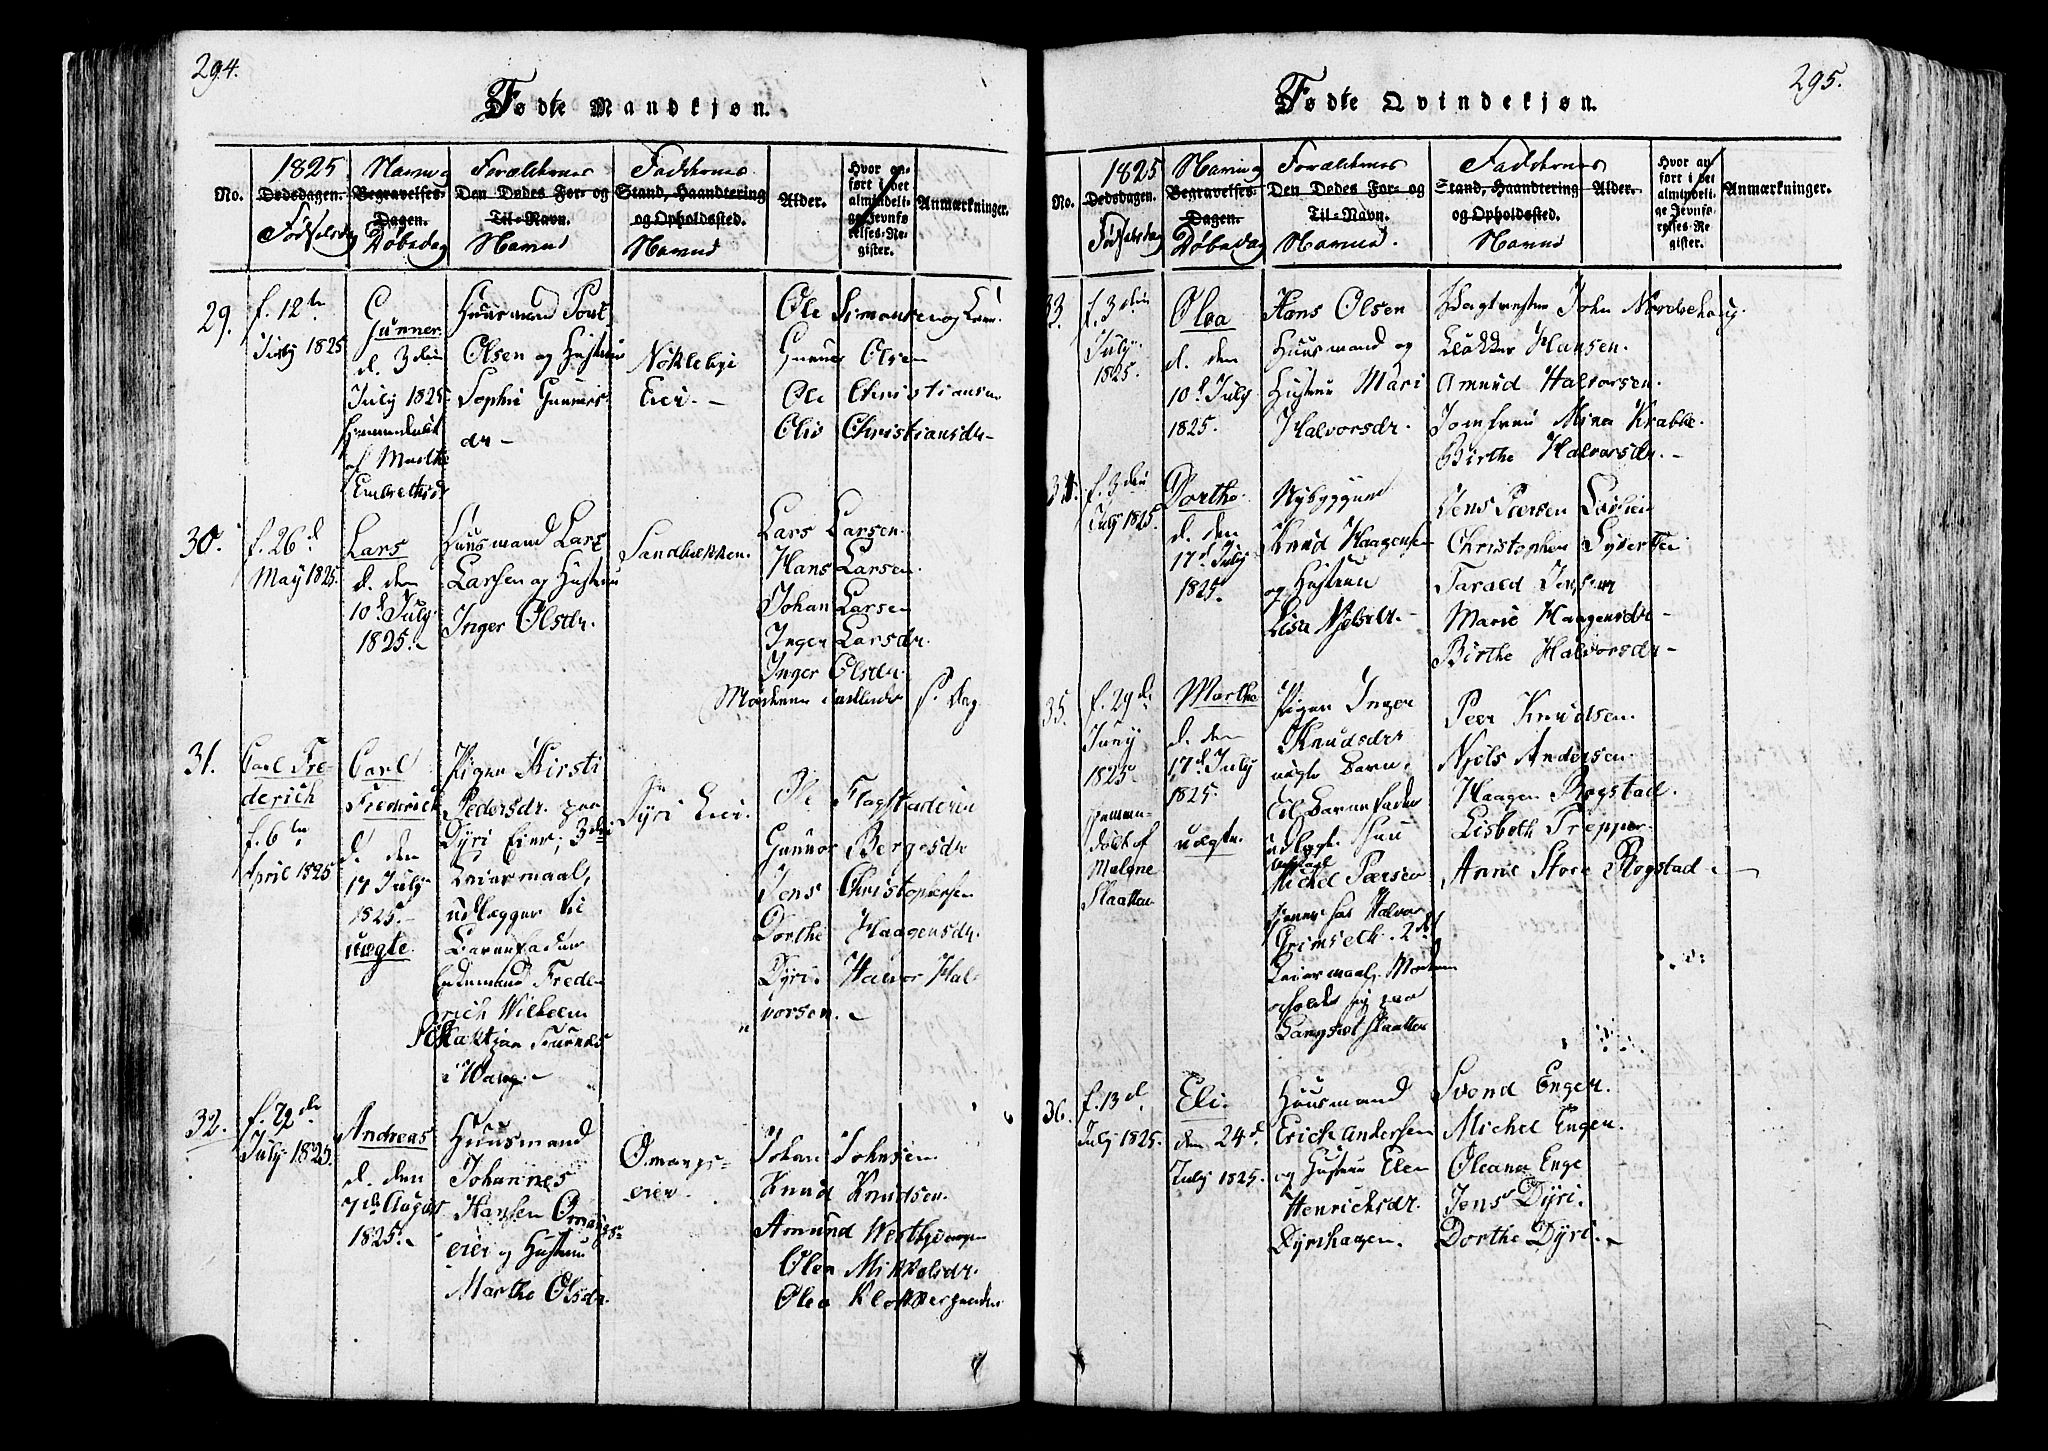 294.
Fødte Mandkjøn.
No.
1825
Dødsdagen.
Fødselsdag
Navn og
Begravelses-
Dagen.
Døbedag
Forældrenes
Den Dødes For- og
Til-Navn.
Navne
Faddernes
Stand, Haandtering
og Opholdssted.
Navne
Alder.
Hvor an-
ført i det
almindeli-
ge Jevnfø-
relses-Re-
gister.
Anmærkninger.
29.
f. 12te
July 1825
Gunner
d. 3die
July 1825
hjemmedøbt
af Marthe
Embrethsdr
Huusmand Poul
Olsen og Hustrue
Sophie Gunners
dr -
Nøkleby
Eier. -
Ole Simensen
Gunner Olsen
Ole Christiansen
Oliv Christiansdr -
30.
f. 26d
May 1825.
Lars
d. den
10d July
1825. -
Huusmand Lars
Larsen og Hustrue
Inger Olsdr.
Sandbækken.
Lars Larsen.
Hans Larsen.
Johan Larsen
Inger Larsdr.
Inger Olsdr.
31.
Carl Fre-
derich
f. 6te
April 1825
Carl
Frederich
d. den
17 July
1825. -
uægte.
Pigen Kirsti
Pedersdr. paa
Dyri Eier, 3die
Leiermaal,
udlægger til
Barnefader
Frede-
rich Wilhelm
i Wang. -
Dyri Eier.
Ole Flagstaderie
Gunnor Bergesdr
Jens Christophersen
Dorthe Haagensdr.
Dyri. Halvor Hal-
vorsen. -
32.
July 1825.
Andreas
d. den
7de August
1825. -
Huusmand
Johannes
Hansen Omangs-
eier og Hustrue
Marthe Olsdr.
Omangs-
eier.
Johan Johnsen
Knud Knudsen.
Amund Westbye
Olea Mikkelsdr.
Olea
295.
Fødte Qvindekjøn.
No.
1825
Dødsdagen.
Fødselsdag
Navn og
Begravelses-
Dagen.
Døbedag
Forældrenes
Den Dødes For- og
Til-Navn.
Navne.
Faddernes
Stand, Haandtering
og Opholdssted.
Navne
Alder.
Hvor an-
ført i det
almindeli-
ge Jevnfø-
relses-Re-
gister.
Anmærkninger.
33.
f. 3die
July
1825.
Olea
d. den
10d July
1825.
Hans Olsen
Huusmand og
Hustrue Mari
Halvorsdr.
John Nordschoug.
Klokker Hansen.
Amund Halvorsen.
Jomfrue Mina Krabbe.
Birthe Halvorsdr. -
34.
f. 3die
July 1825.
Dorthe.
d. den
17d July
1825.
Nybyggeren
Knud Haagensen
og Hustrue
Lise Njelsdr. -
Jens Peersen
Christopher
Tarald Jensen
Marie Haagensdr -
Birthe Halvorsdr -
35.
f. 29d
Juny
1825
hjemme-
døbt af
Malene
Slaatten
Marthe
d. den
17d July
1825.
uægte.
Pigen Inger
Knudsdr
uægte Barn,
til Barnefader
udlagt
Michel Pæersen
tjener hos Halvor
Grimseth. 2det
Leiermaal. Moderen
opholder sig paa
Peer Knudsen.
Njels Andersen
Haagen Rogstad.
Lisbeth Trepper
Anne Store Rogstad -
36.
f. 13d
July 1825.
Eli.
den 24d
July 1825.
Huusmand
Erick Andersen
og Hustrue Elen
Henricksdr.
Dyrihagen.
Svend Enger.
Michel Engen.
Oleana Enge
Jens Dyri.
Dorthe Dyri. -